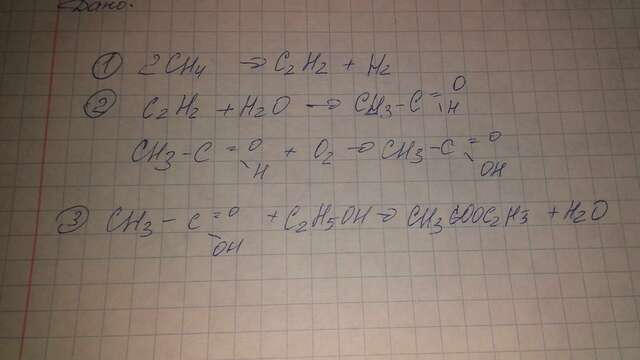 Дано:
① 2CH4 → C2H2 + H2
② C2H2 + H2O → CH3-C=O H
CH3-C=O H + O2 → CH3-C=O OH
③ CH3-C=O OH + C2H5OH → CH3COOC2H3 + H2O